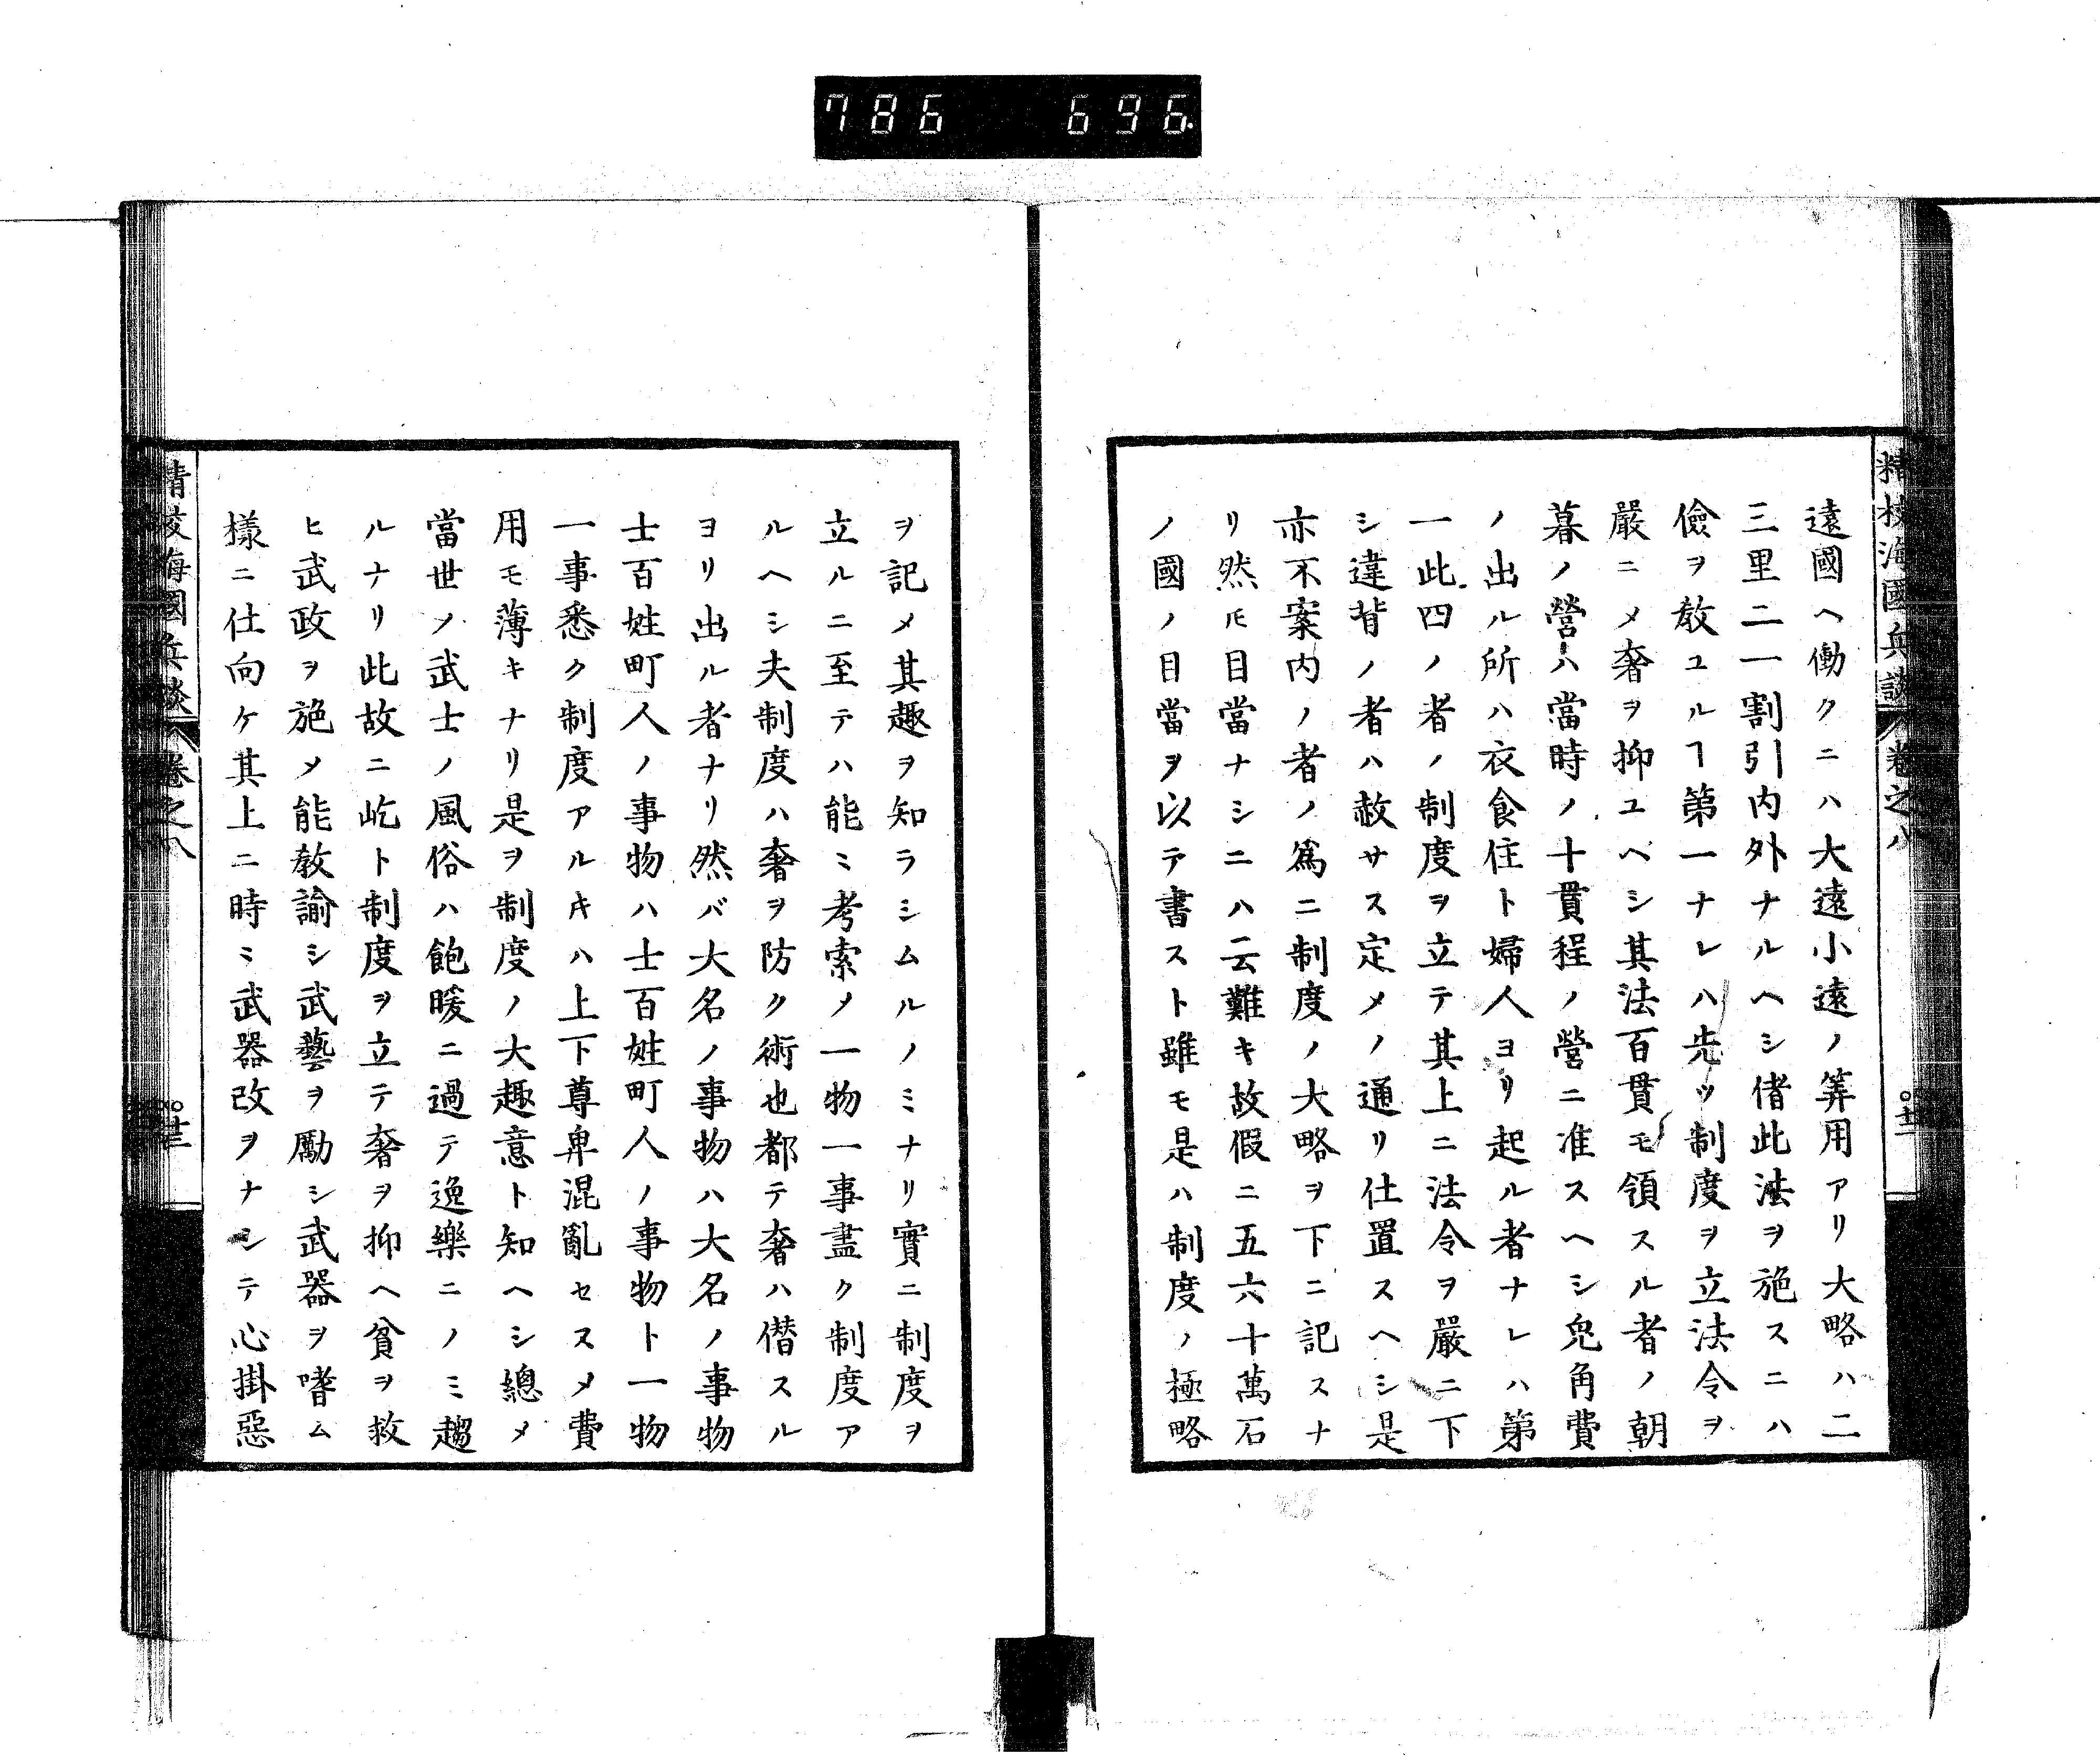 786 696
精校海國兵談 卷之八
遠國ヘ働クニハ大遠小遠ノ筭用アリ大略ハ二
三里二一割引内外ナルヘシ偖此法ヲ施スニハ
儉ヲ敎ユルヿ第一ナレハ先ツ制度ヲ立法令ヲ
嚴ニメ奢ヲ抑ユヘシ其法百貫モ領スル者ノ朝
暮ノ營ハ當時ノ十貫程ノ營ニ准スヘシ兎角費
ノ出ル所ハ衣食住ト婦人ヨリ起ル者ナレハ第
一此四ノ者ノ制度ヲ立テ其上ニ法令ヲ嚴ニ下
シ違背ノ者ハ赦サス定メノ通リ仕置スヘシ是
亦不案内ノ者ノ爲ニ制度ノ大略ヲ下ニ記スナ
リ然𪜈目當ナシニハ云難キ故假ニ五六十萬石
ノ國ノ目當ヲ以テ書スト雖モ是ハ制度ノ極略
ヲ記メ其趣ヲ知ラシムルノミナリ實ニ制度ヲ
立ルニ至テハ能ミ考索メ一物一事盡ク制度ア
ルヘシ夫制度ハ奢ヲ防ク術也都テ奢ハ僭スル
ヨリ出ル者ナリ然バ大名ノ事物ハ大名ノ事物
士百姓町人ノ事物ハ士百姓町人ノ事物ト一物
一事悉ク制度アルキハ上下尊卑混亂セスメ費
用モ薄キナリ是ヲ制度ノ大趣意ト知ヘシ總メ
當世ノ武士ノ風俗ハ飽暖ニ過テ逸樂ニノミ趨
ルナリ此故ニ屹ト制度ヲ立テ奢ヲ抑ヘ貧ヲ救
ヒ武政ヲ施メ能敎諭シ武藝ヲ勵シ武器ヲ嗜ム
樣ニ仕向ケ其上ニ時ミ武器改ヲナシテ心掛惡
精校海國兵談 卷之八